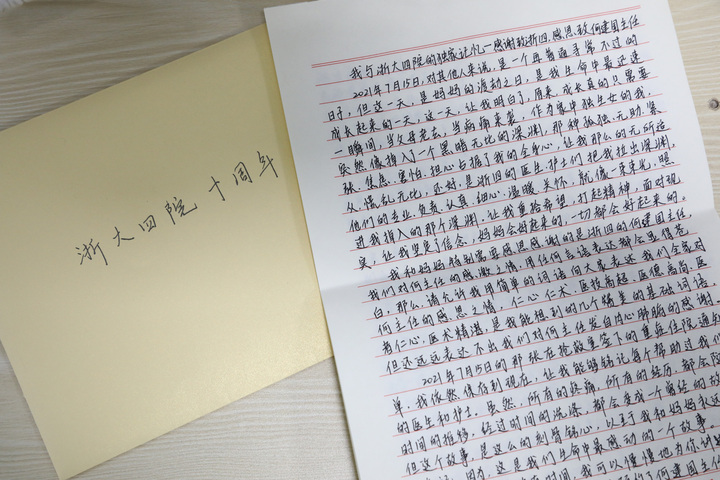 浙大四院十周年
我与浙大四院的独家记忆—感谢致浙四,感恩致何建国主任
2021年7月15日,对其他人来说,是一个再普通寻常不过的
日子,但这一天,是妈妈的渡劫之日,是我生命中最迅速
成长起来的一天,这一天,让我明白了,原来,成长真的只需要
一瞬间,当父母老去,当病痛来袭,作为家中独生女的我,
突然像掉入了一个黑暗无比的深渊,那种孤独无助、紧
张、焦虑、害怕、担心占据了我的全身心,让我那么的无所适
从、慌乱无比。还好,是浙四的医生护士们把我拉出深渊,
他们的专业、负责、认真、细心、温暖、关怀,就像一束光,照
进我掉入的那个深渊,让我重拾希望,打起精神,面对现
实,让我坚定了信念,妈妈会好起来的,一切都会好起来的。
我和妈妈特别需要感恩感谢的是浙四的何建国主任,
我们对何主任的感激之情,用任何言语表达都会显得苍
白。那么,请允许我用简单的词语向大家表述我们全家对
何主任的感恩之情,仁心仁术、医技高超、医德高尚、医
者仁心、医术精湛,是我能想到的几个精美的基础词语,
但还远远表达不出我们对何主任发自内心肺腑的感谢。
2021年7月15日的那张在抢救室开的重症住院通知
单,我依然保存到现在,让我能够铭记每个帮助过我们
的医生和护士,虽然,所有的经历,都会随
时间的推移,经过时间的洗涤,都会变成一个曾经的故
但这个故事,是这么的刻骨铭心,以至于我和妈妈永远
因为,这是我们生命中最感动的一个故事。
时间,我可以慢慢地为你
了何建国主任